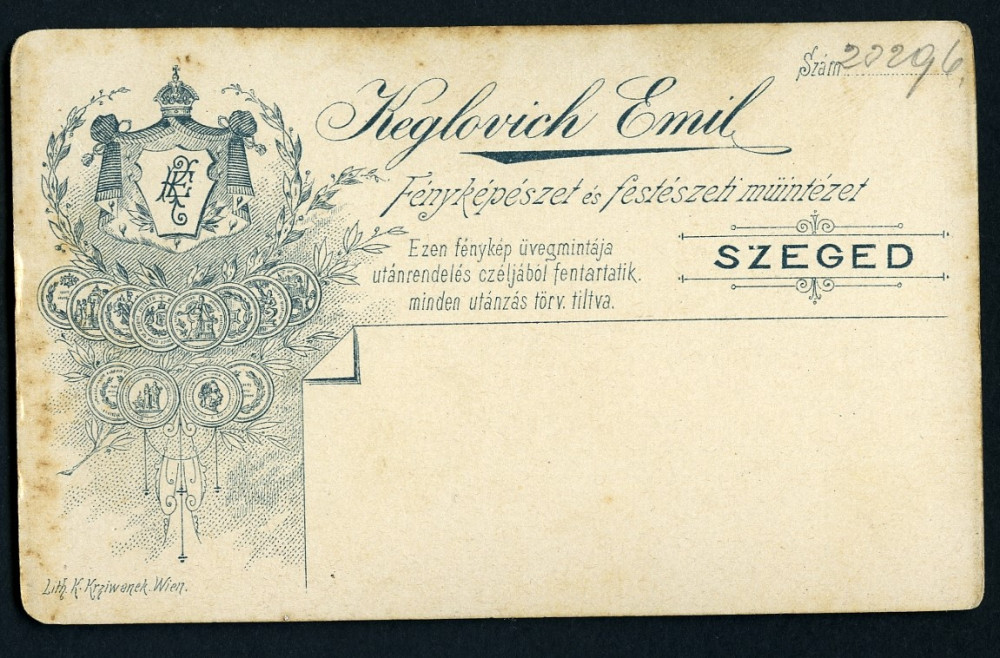 Szám 20296
Keglovich Emil
Fényképészet és festészeti müintézet
SZEGED
Ezen fénykép üvegmintája
utánrendelés czéljából fentartatik.
minden utánzás törv. tiltva.
Lith. K. Krziwanek. Wien.